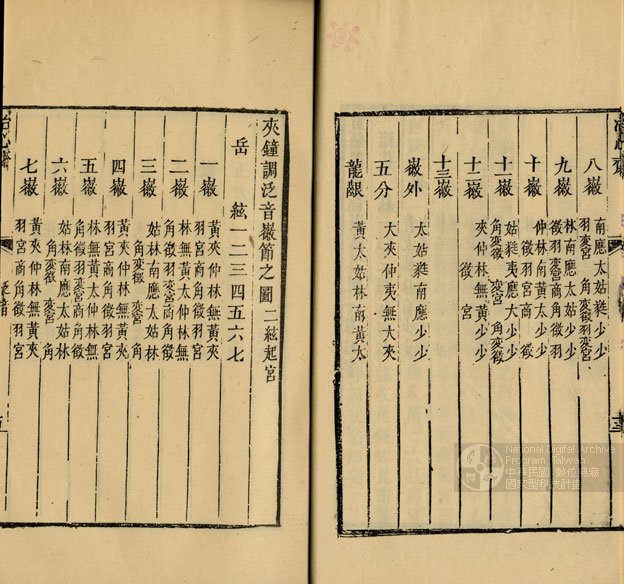 八徽 南應太姑蕤少少
羽变宮 角变徵羽变宮
九徽 林南應太姑少少
徵羽变宮商角徵羽
十徽 仲林南黃太少少
徵羽宮商 徵
十一徽 姑蕤夷應大少少
角变徵 变宮 角变徵
十二徽 夾仲林無黃少少
徵 宮
十三徽
徽外 太姑蕤南應少少
五分 大夾仲夷無大夾
龍齦 黃太姑林南黃太
十三
夾鐘調泛音徽節之圖 二絃起宮
岳 絃一二三四五六七
一徽 黃夾仲林無黃夾
羽宮商角徵羽宮
二徽 林無黃太仲林無
角徵羽变宮商角徵
三徽 姑林南應太姑林
角变徵 变宮 角
四徽 黃夾仲林無黃夾
羽宮商角徵羽宮
五徽 林無黃太仲林無
角徵羽变宮商角徵
六徽 姑林南應太姑林
角变徵 变宮 角
七徽 黃夾仲林無黃夾
羽宮商角徵羽宮
National Digital Archive
Program, Taiwan
中華民國 數位典藏
國家型科技計畫